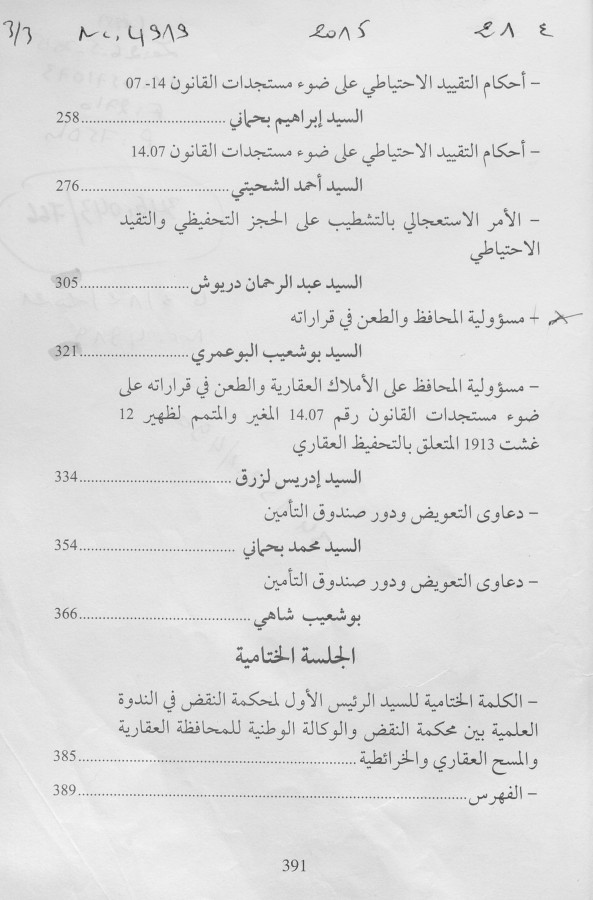 3/3 Nc. 4919 2015 218
– أحكام التقييد الاحتياطي على ضوء مستجدات القانون 14- 07
السيد إبراهيم بحماني ........................................258
– أحكام التقييد الاحتياطي على ضوء مستجدات القانون 14.07
السيد أحمد الشحيتي........................................276
– الأمر الاستعجالي بالتشطيب على الحجز التحفيظي والتقيد
الاحتياطي
السيد عبد الرحمان دريوش........................................305
+ مسؤولية المحافظ والطعن في قراراته
السيد بوشعيب البوعمري........................................321
– مسؤولية المحافظ على الأملاك العقارية والطعن في قراراته على
ضوء مستجدات القانون رقم 14.07 المغير والمتمم لظهير 12
غشت 1913 المتعلق بالتحفيظ العقاري
السيد إدريس لزرق ........................................334
– دعاوى التعويض ودور صندوق التأمين
السيد محمد بحماني ........................................354
– دعاوى التعويض ودور صندوق التأمين
بوشعيب شاهي ........................................366
الجلسة الختامية
– الكلمة الختامية للسيد الرئيس الأول لمحكمة النقض في الندوة
العلمية بين محكمة النقض والوكالة الوطنية للمحافظة العقارية
والمسح العقاري والخرائطية........................................385
– الفهرس........................................389
391